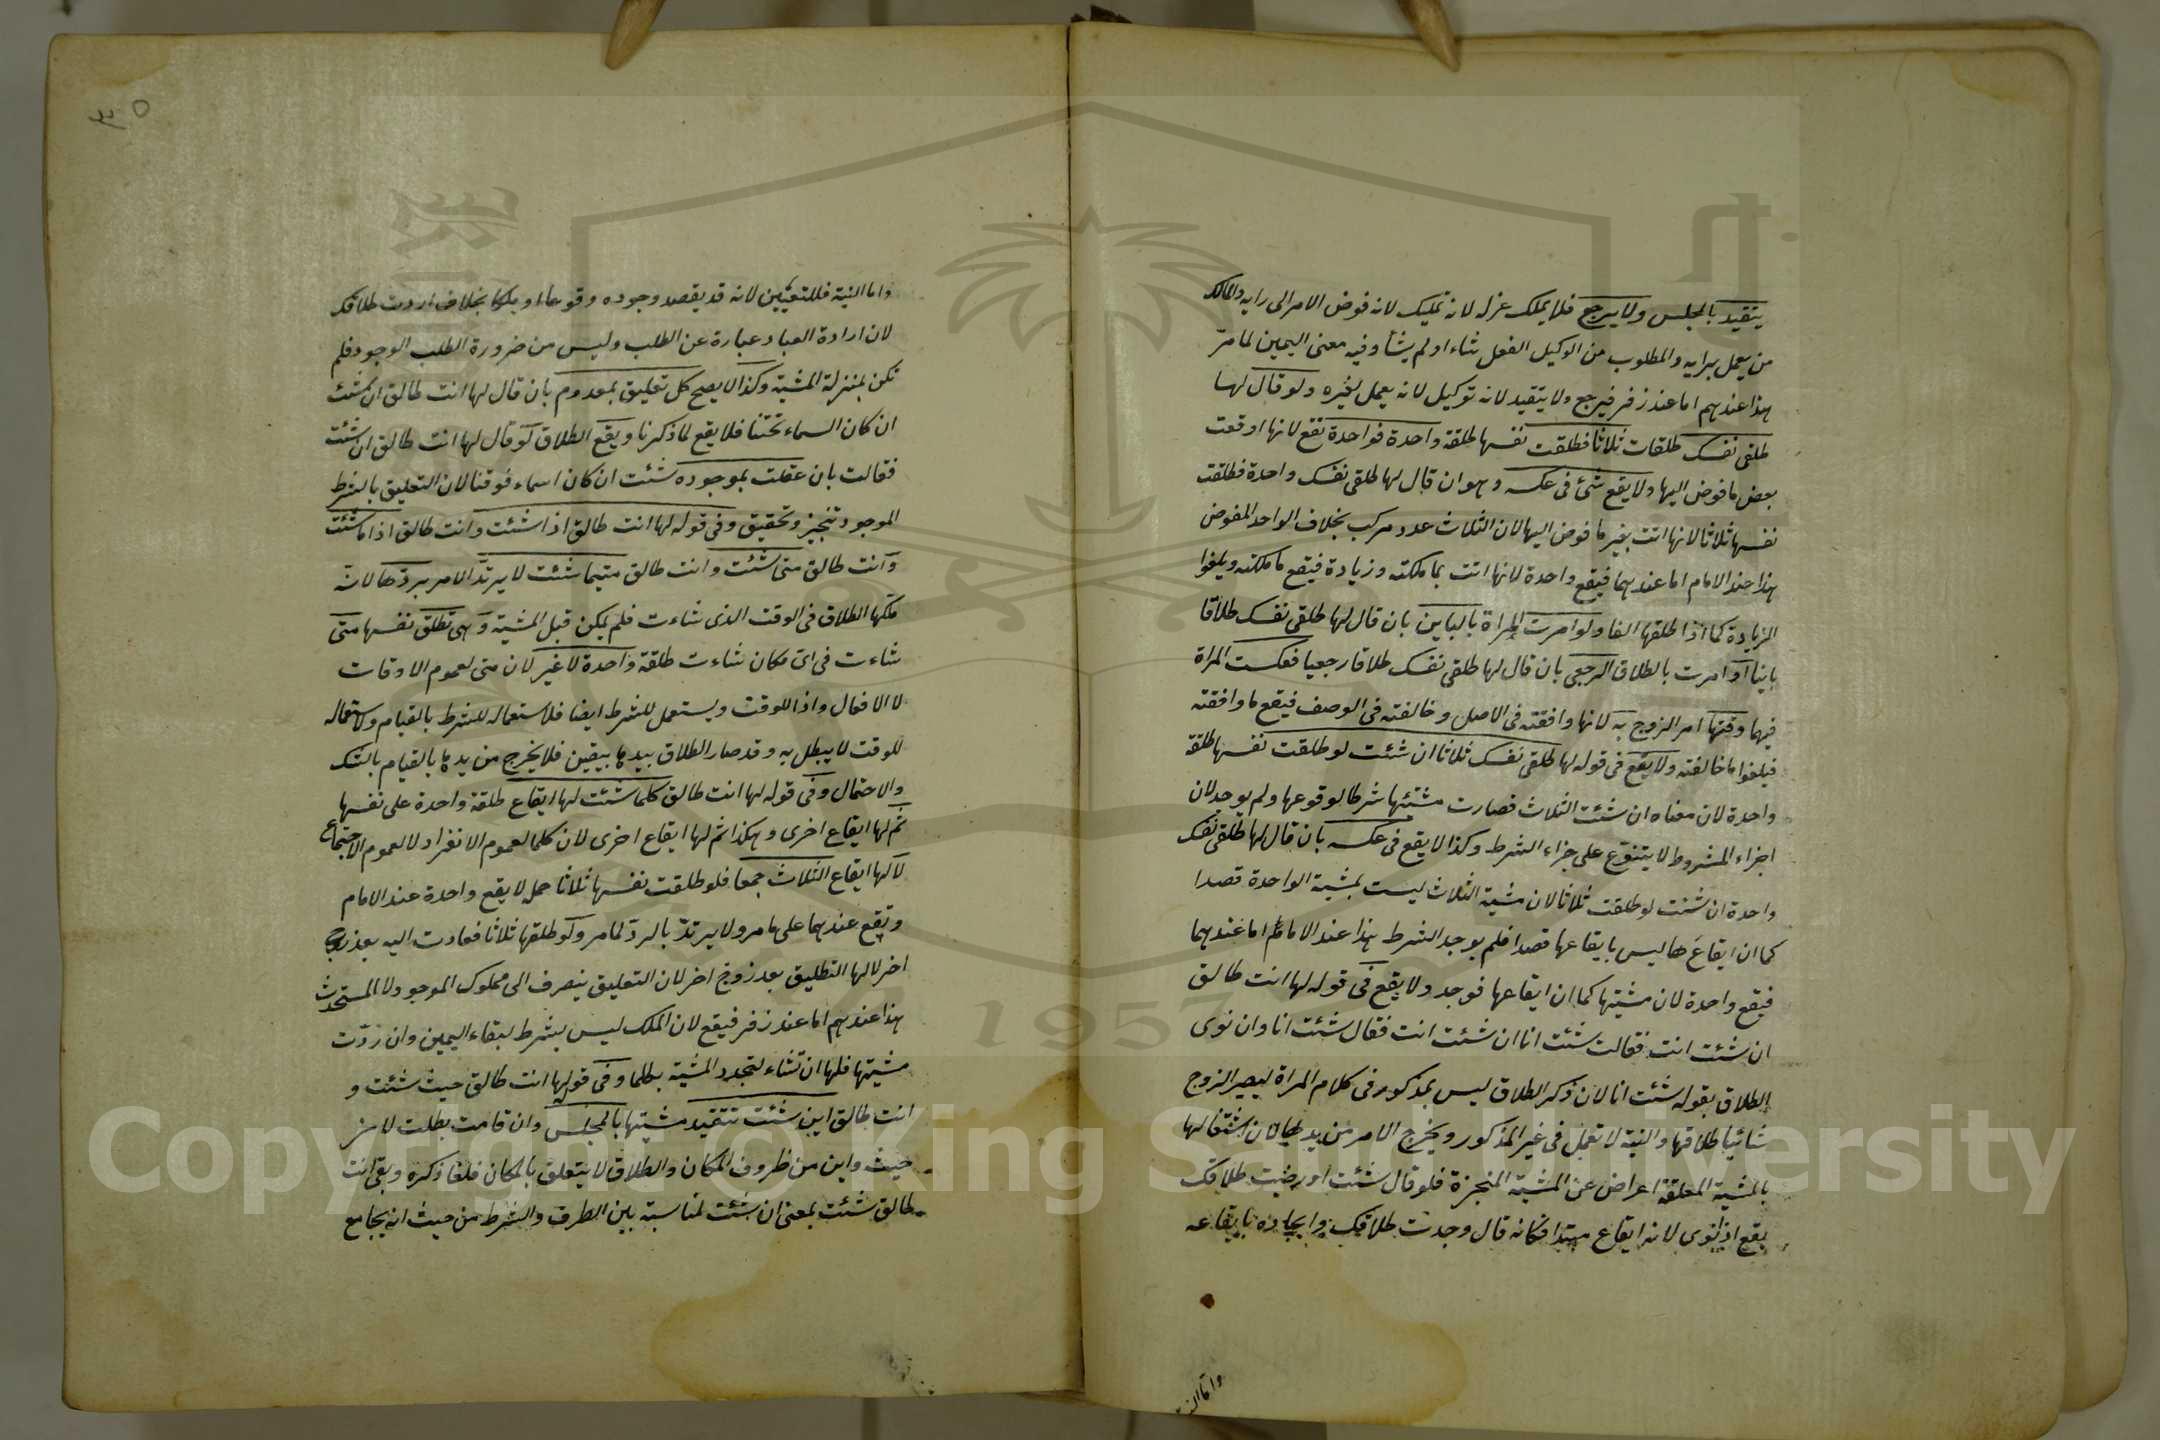 يتقيد بالمجلس ولا يرجع فلا يملك عزله لانه تمليك لانه فوض الامر الى رايه والمالك
من يعمل برايه والمطلوب من الوكيل الفعل شاء او لم يشأ وفيه معنى اليمين لما مرّ
هذا عندهم اما عند زفر فيرجع ولا يتقيد لانه توكيل لانه يعمل لغيره ولو قال لها
طلقى نفسك طلقات ثلاثا فطلقت نفسها طلقة واحدة فواحدة تقع لانها اوقعت
بعض ما فوض اليها ولا يقع شئ فى عكسه وهو ان قال لها طلقى نفسك واحدة فطلقت
نفسها ثلاثا لانها اتت بغير ما فوض اليها لان الثلاث عدد مركب بخلاف الواحد المفوض
هذا عند الامام اما عندهما فيقع واحدة لانها اتت بما ملكته وزيادة فيقع ما ملكته ويلغوا
الزيادة كما اذا طلقها الفا ولو امرت المراة بالباين بان قال لها طلقى نفسك طلاقا
باينا او امرت بالطلاق الرجعى بان قال لها طلقى نفسك طلاقا رجعيا فعكست المراة
فيهما وقتها امر الزوج به لانها وافقته فى الاصل وخالفته فى الوصف فيقع ما وافقته
فيلغوا ما خالفته ولا يقع فى قوله لها طلقى نفسك ثلاثا ان شئت لو طلقت نفسها طلقة
واحدة لان معناه ان شئت الثلاث فصارت مشئتها شرطا لوقوعها ولم يوجد لان
اجزاء المشروط لا يتنوع على جزاء الشرط وكذا لا يقع فى عكسه بان قال لها طلقى نفسك
واحدة ان شئت لو طلقت ثلاثا لان مشية الثلاث ليست بمشية الواحدة قصدا
كما ان ايقاعها ليس بايقاعها قصدا فلم يوجد الشرط هذا عند الامام اما عندهما
فيقع واحدة لان مشيتها كما ان ايقاعها فوجد ولا يقع فى قوله لها انت طالق
ان شئت انت فقالت شئت انا ان شئت انت فقال شئت انا وان نوى
الطلاق بقوله شئت انا لان ذكر الطلاق ليس بمذكور فى كلام المراة ليصير الزوج
شائيا طلاقها والنية لا تعمل فى غير المذكور ويخرج الامر من يدها لان اشتغالها
بالمشية المعلقة اعراض عن المشية المنجزة فلو قال شئت او رضيت طلاقك
يقع اذا نوى لانه ايقاع مبتدا فكانه قال وجدت طلاقك وايجاده بايقاعه
واما النية
واما النية فللتعيين لانه قد يقصد وجوده وقوعا او ملكا بخلاف اردت طلاقك
لان ارادة العباد عبارة عن الطلب وليس من ضرورة الطلب الوجود فلم
تكن بمنزلة المشية وكذا لا يصح كل تعليق بمعدوم بان قال لها انت طالق ان شئت
ان كان السماء تحتنا فلا يقع لما ذكرنا ويقع الطلاق لو قال لها انت طالق ان شئت
فقالت بان علقت بموجوده شئت ان كان السماء فوقنا لان التعليق بالشرط
الموجود تنجيز وتحقيق وفى قوله لها انت طالق اذا شئت وانت طالق اذا ما شئت
وانت طالق متى شئت وانت طالق متيما شئت لا يرتدّ الامر بردّها لانه
ملكها الطلاق فى الوقت الذى شاءت فلم يكن قبل المشية وهى تطلق نفسها متى
شاءت فى اى مكان شاءت طلقة واحدة لا غير لان متى لعموم الاوقات
لا الافعال واذا للوقت ويستعمل للشرط ايضا فلاستعماله للشرط بالقيام ولاستعماله
للوقت لا يبطل به وقد صار الطلاق بيدها بيقين فلا يخرج من يدها بالقيام بالشك
والاحتمال وفى قوله لها انت طالق كلما شئت لها ايقاع طلقة واحدة على نفسها
ثم لها ايقاع اخرى وهكذا ثم لها ايقاع اخرى لان كلما لعموم الانفراد لا لعموم الاجتماع
لا لها ايقاع الثلاث جمعا فلو طلقت نفسها ثلاثا جملة لا يقع واحدة عند الامام
وتقع عندهما على ما مر ولا يرتدّ بالردّ لما مر ولو طلقها ثلاثا فعادت اليه بعد زوج
اخر لا لها التطليق بعد زوج اخر لان التعليق ينصرف الى مملوك الموجود لا المستحدث
هذا عندهم اما عند زفر فيقع لان الملك ليس بشرط لبقاء اليمين وان ردّت
مشيتها فلها ان تشاء لتجدد المشية بكلما وفى قوله لها انت طالق حيث شئت و
انت طالق اين شئت تتقيد مشيتها بالمجلس وان قامت بطلت لان
حيث واين من ظروف المكان والطلاق لا يتعلق بالمكان فلغا ذكره وبقى انت
طالق شئت بمعنى ان شئت لمناسبة بين الظرف والشرط من حيث انه يجامع
Copyright © King Saud University
1957